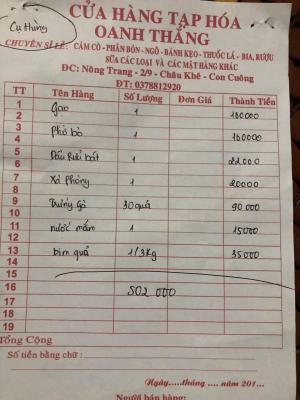 Cụ Hùng
CỬA HÀNG TẠP HÓA
OANH THẮNG
CHUYÊN SỈ LẺ: CÁM CÒ - PHÂN BÓN - NGÔ - BÁNH KẸO - THUỐC LÁ - BIA, RƯỢU
SỮA CÁC LOẠI VÀ CÁC MẶT HÀNG KHÁC
ĐC: Nông Trang - 2/9 - Châu Khê - Con Cuông
ĐT: 0378812920
TT Tên Hàng Số Lượng Đơn Giá Thành Tiền
1 Gạo 1
2
3 Phở bò 1 100000
4
5 Dầu rửa bát 1
6
7 Xà phòng 1 20000
8
9 Trứng Gà 30 quả 90 000
10
11 nước mắm 1 15000
12
13 bim quả 1/3kg 35000
14
15
16 502 000
17
18
19
Tổng Cộng
Số tiền bằng chữ:
Ngày.....tháng.... năm 201...
Người bán hàng: